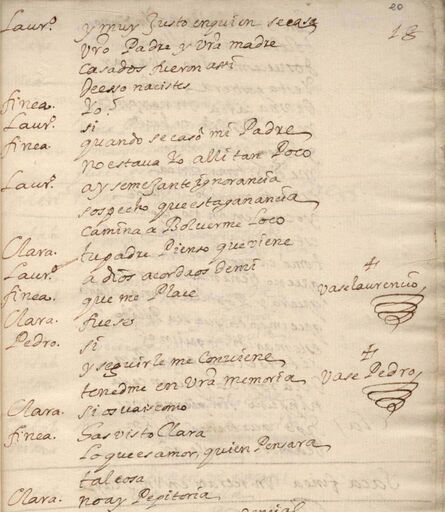 20
18
Laurº. y muy Justo en quien se casa
Vrō Padre y Vrā madre
Casados fueron assi
De esso nacistes
finea. Yo?
Laurº. si
finea. quando se casò mi Padre
no estava Yo alli tan Poco
Laurº. ay semejante ignorancia
sospecho que esta ganancia
Camina a Bolverme Loco
Clara. tu padre Pienso que viene
Laurº. a dios acordaos de mi
Vase laurencio
finea. que me Place
Clara. fuese
Pedro. si
y seguirle me Conviene
tenedme en Vrā memoria
Vase Pedro
Clara. si os vais como
finea. has visto Clara
Lo que es amor, quien Pensara
tal cosa
Clara. no ay Pepitoria